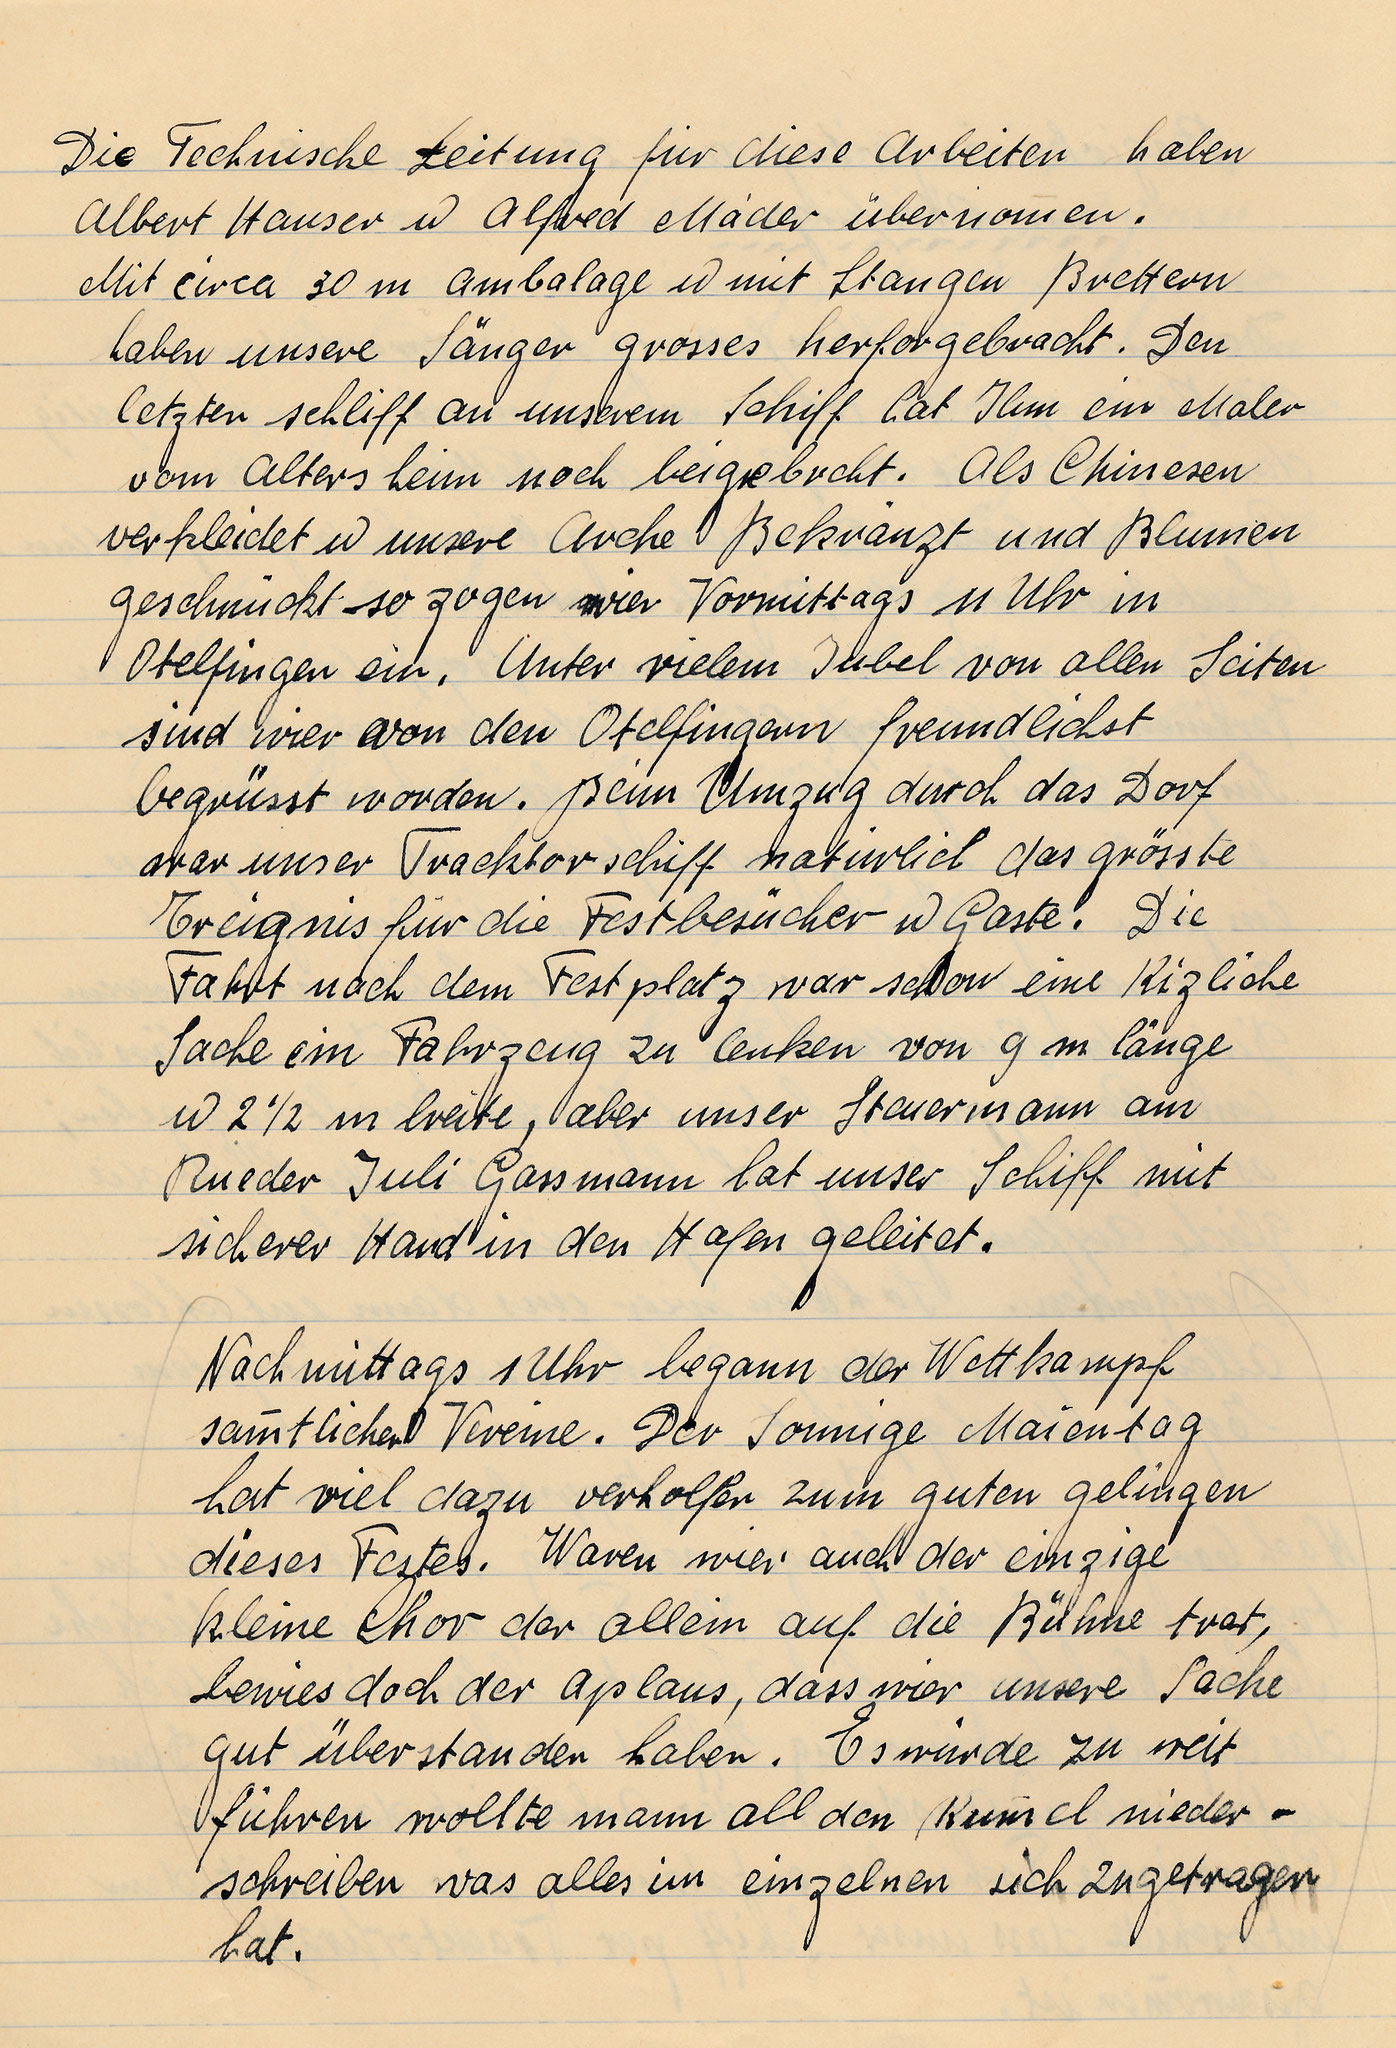 Die Technische Leitung für diese Arbeiten haben
Albert Hauser u Alfred Mäder übernom̄en.
Mit circa 30 m Ambalage u mit Stangen Brettern
haben unsere Sänger grosses herforgebracht. Den
letzten schliff an unserem Schiff hat Ihm ein Maler
vom Altersheim noch beigebrcht. Als Chinesen
verkleidet u unsere Arche Bekränzt und Blumen
geschmückt so zogen wier Vormittags 11 Uhr in
Otelfingen ein. Unter vielem Jubel von allen Seiten
sind wier von den Otelfingern freundlichst
begrüsst worden. Beim Umzug durch das Dorf
war unser Tracktorschiff natürlich das grösste
Ereignis für die Festbesücher u Gäste. Die
Fahrt nach dem Festplatz war schon eine Kizliche
Sache ein Fahrzeug zu lenken von 9 m länge
u 2 1/2 m breite, aber unser Steuermann am
Rueder Juli Gassmann hat unser Schiff mit
sicherer Hand in den Hafen geleitet.
Nachmittags 1 Uhr begann der Wettkampf
sam̄tlicher Vereine. Der Sonnige Maientag
hat viel dazu verholfen zum guten gelingen
dieses Festes. Waren wier auch der einzige
kleine Chor der allein auf die Bühne trat,
bewies doch der Aplaus, dass wier unsere Sache
gut überstanden haben. Es würde zu weit
führen wollte mann all den Rum̄el nieder-
schreiben was alles im einzelnen sich zugetragen
hat.